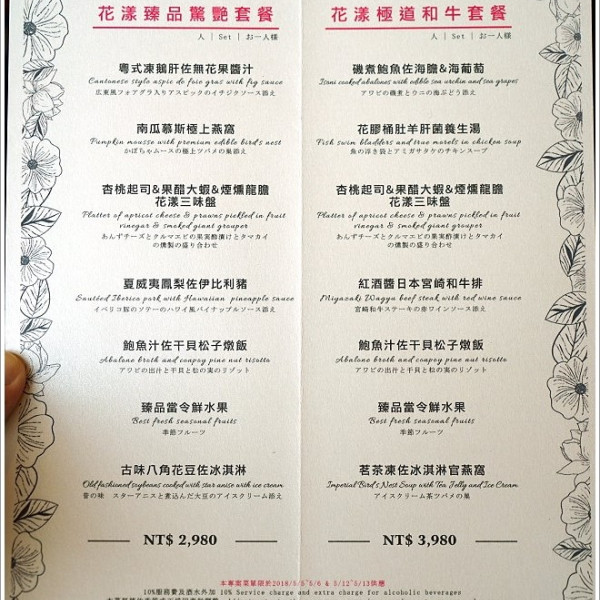 花漾臻品驚艷套餐
人 | Set | お一人様
粵式凍鵝肝佐無花果醬汁
Cantonese style aspic de foie gras with fig sauce
広東風フォアグラ入りアスピックのイチジクソース添え
南瓜慕斯極上燕窩
Pumpkin mousse with premium edible bird's nest
かぼちゃムースの極上ツバメの巣添え
杏桃起司&果醋大蝦&煙燻龍膽
花漾三味盤
Platter of apricot cheese & prawns pickled in fruit
vinegar & smoked giant grouper
あんずチーズとクルマエビの果実酢漬けとタマカイ
の燻製の盛り合わせ
夏威夷鳳梨佐伊比利豬
Sautéed Iberico pork with Hawaiian pineapple sauce
イベリコ豚のソテーのハワイ風パイナップルソース添え
鮑魚汁佐干貝松子燉飯
Abalone broth and conpoy pine nut risotto
アワビの出汁と干貝と松の実のリゾット
臻品當令鮮水果
Best fresh seasonal fruits
季節フルーツ
古味八角花豆佐冰淇淋
Old fashioned soybeans cooked with star anise with ice cream
昔の味 スターアニスと煮込んだ大豆のアイスクリーム添え
NT$ 2,980
花漾極道和牛套餐
人 | Set | お一人様
磯煮鮑魚佐海膽&海葡萄
Isoni cooked abalones with edible sea urchin and sea grapes
アワビの磯煮とウニの海ぶどう添え
花膠桶肚羊肝菌養生湯
Fish swim bladders and true morels in chicken soup
魚の浮き袋とアミガサタケのチキンスープ
杏桃起司&果醋大蝦&煙燻龍膽
花漾三味盤
Platter of apricot cheese & prawns pickled in fruit
vinegar & smoked giant grouper
あんずチーズとクルマエビの果実酢漬けとタマカイ
の燻製の盛り合わせ
紅酒醬日本宮崎和牛排
Miyazaki Wagyu beef steak with red wine sauce
宮崎和牛ステーキの赤ワインソース添え
鮑魚汁佐干貝松子燉飯
Abalone broth and conpoy pine nut risotto
アワビの出汁と干貝と松の実のリゾット
臻品當令鮮水果
Best fresh seasonal fruits
季節フルーツ
茗茶凍佐冰淇淋官燕窩
Imperial Bird's Nest Soup with Tea Jelly and Ice Cream
アイスクリーム茶ツバメの巣
NT$ 3,980
本專案菜單限於2018/5/5~5/6 & 5/12~5/13供應
10%服務費及酒水外加 10% Service charge and extra charge for alcoholic beverages